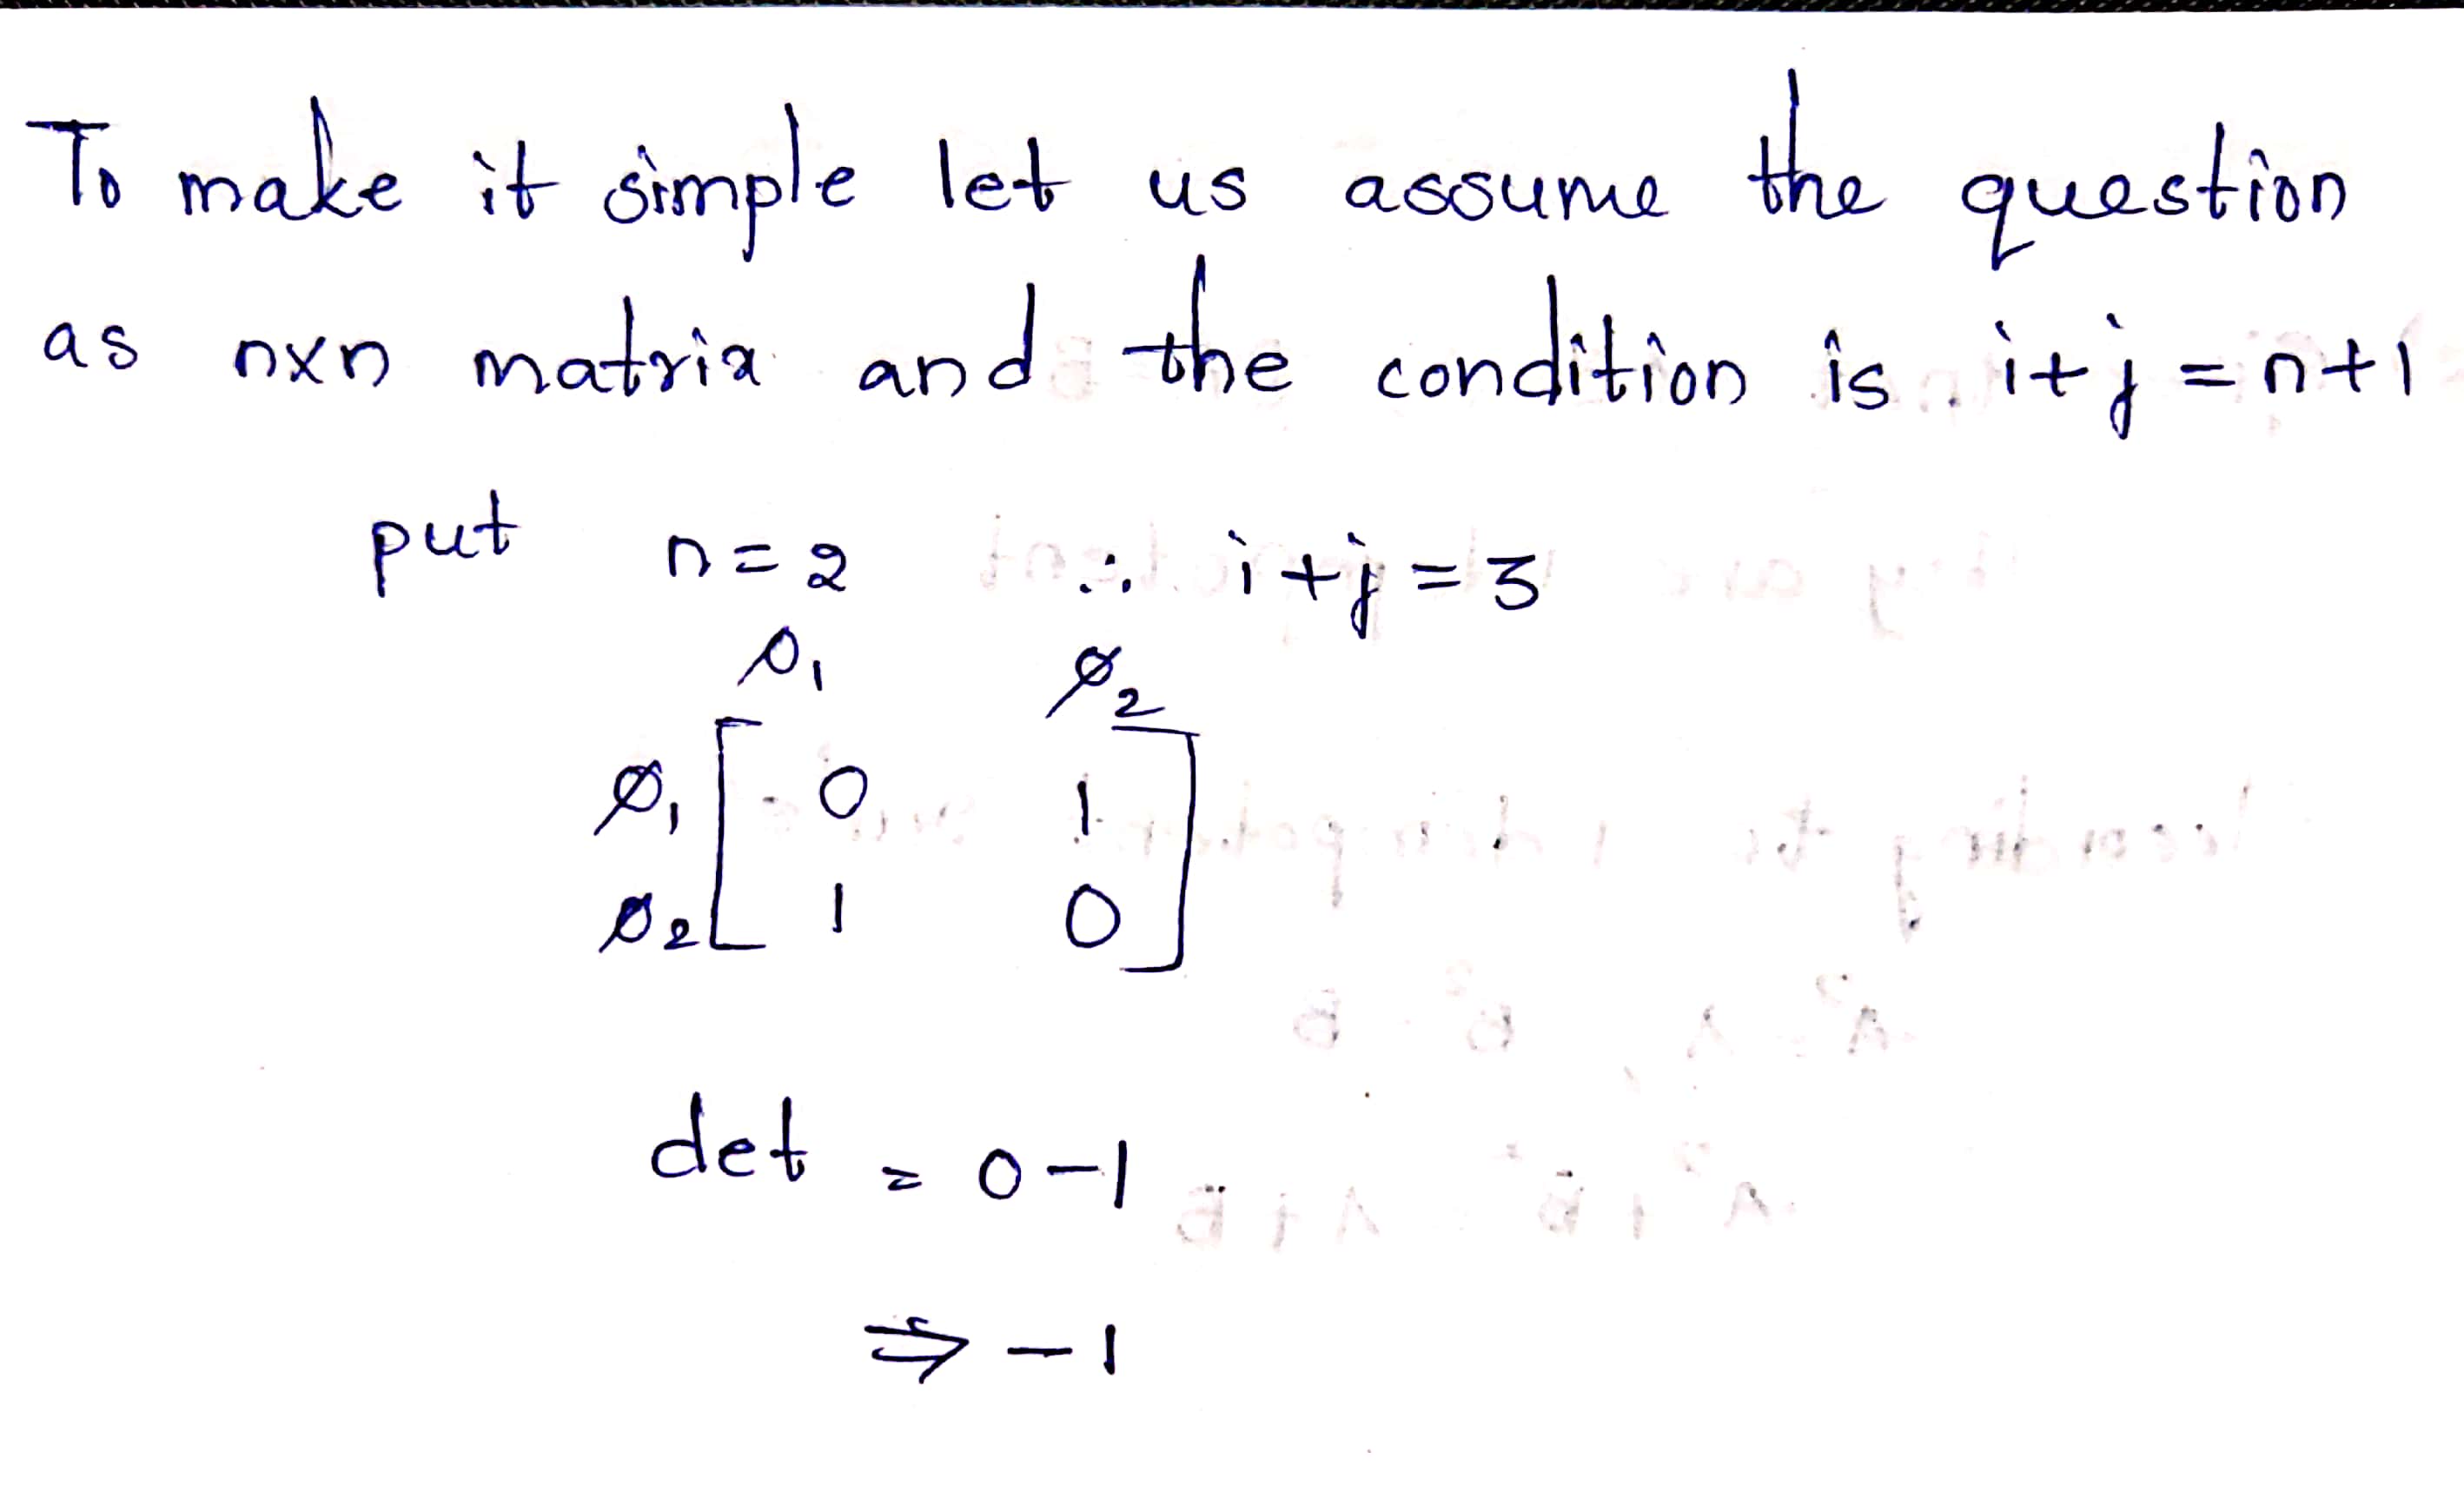 To make it simple let us assume the question
as nxn matrix and the condition is i+j = n+1
put n=2 ∴ i+j = 3
0 1
1 0
det = 0-1
⇒ -1